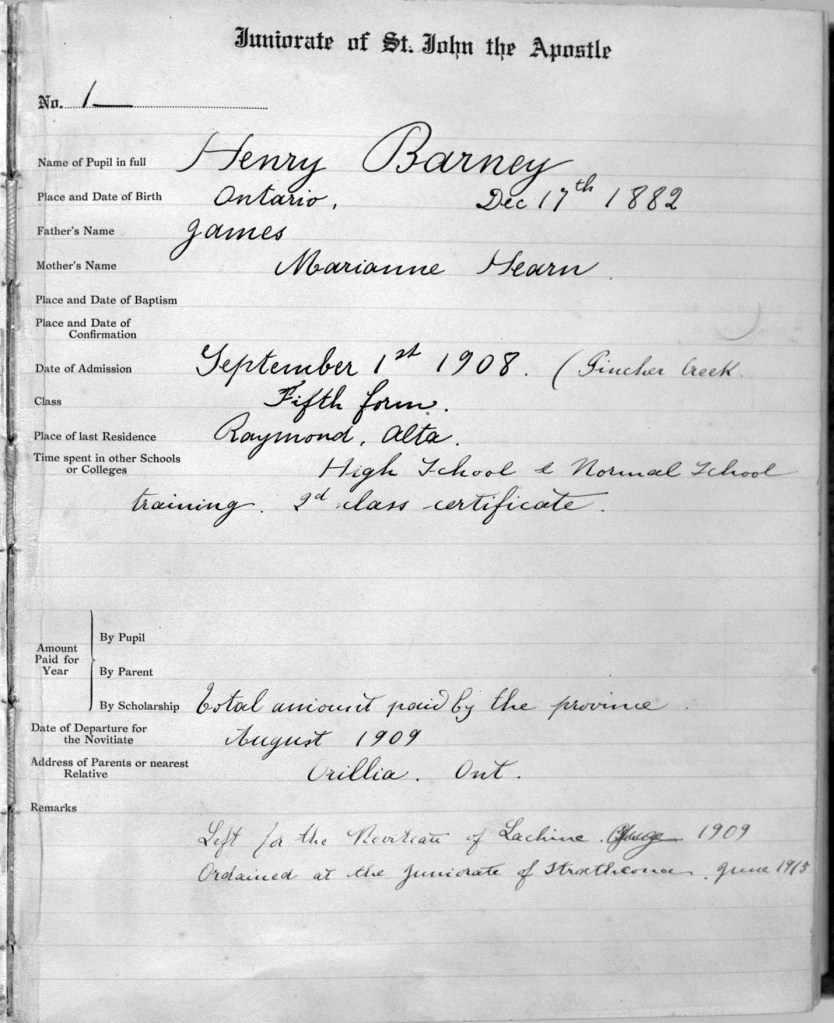 Juniorate of St. John the Apostle
No. 1
Name of Pupil in full Henry Barney
Place and Date of Birth Ontario, Dec 17th 1882
Father's Name James
Mother's Name Marianne Hearn.
Place and Date of Baptism
Place and Date of
Confirmation
Date of Admission September 1st 1908. (Pincher Creek
Class Fifth form.
Place of last Residence Raymond, Alta.
Time spent in other Schools
or Colleges High School & Normal School
training. 2d class certificate.
Amount
Paid for
Year
By Pupil
By Parent
By Scholarship Total amount paid by the province.
Date of Departure for
the Novitiate August 1909
Address of Parents or nearest
Relative Orillia. Ont.
Remarks
Left for the Novitiate of Lachine 1909
Ordained at the Juniorate of Strathcona. June 1915